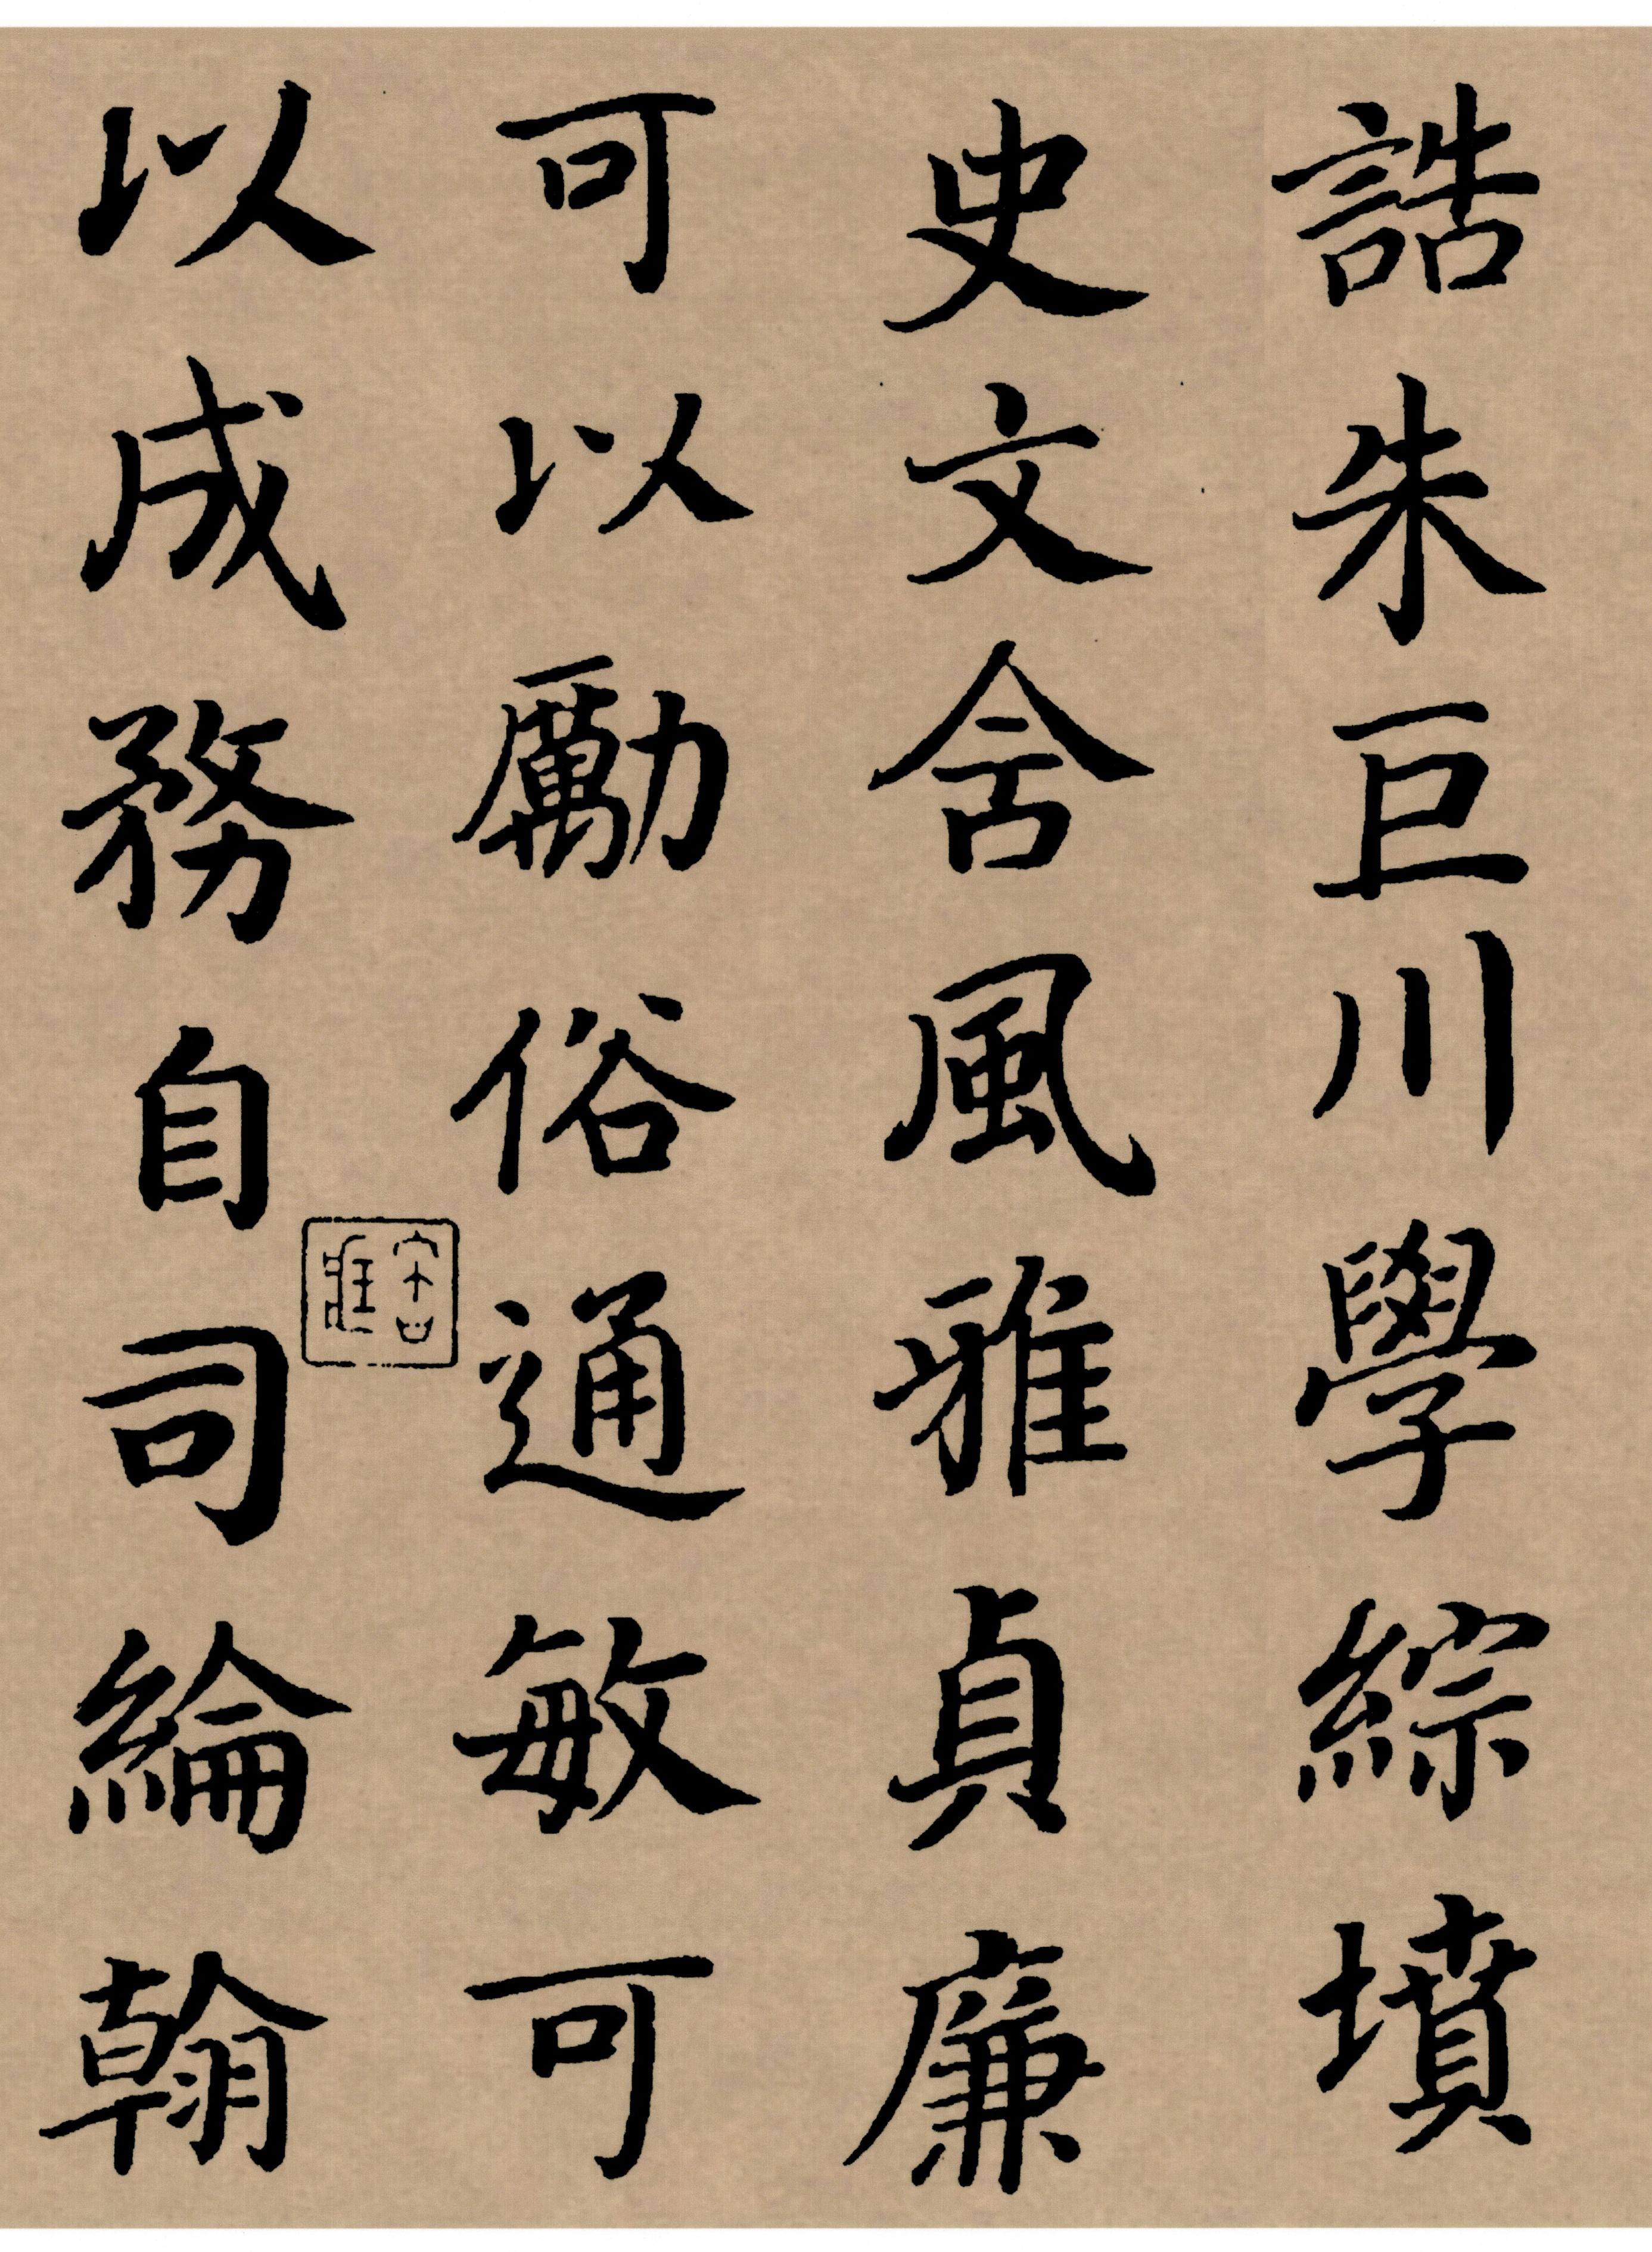 誥朱巨川學綜墳
史文含風雅貞廉
可以勵俗通敏可
以成務自司綸翰